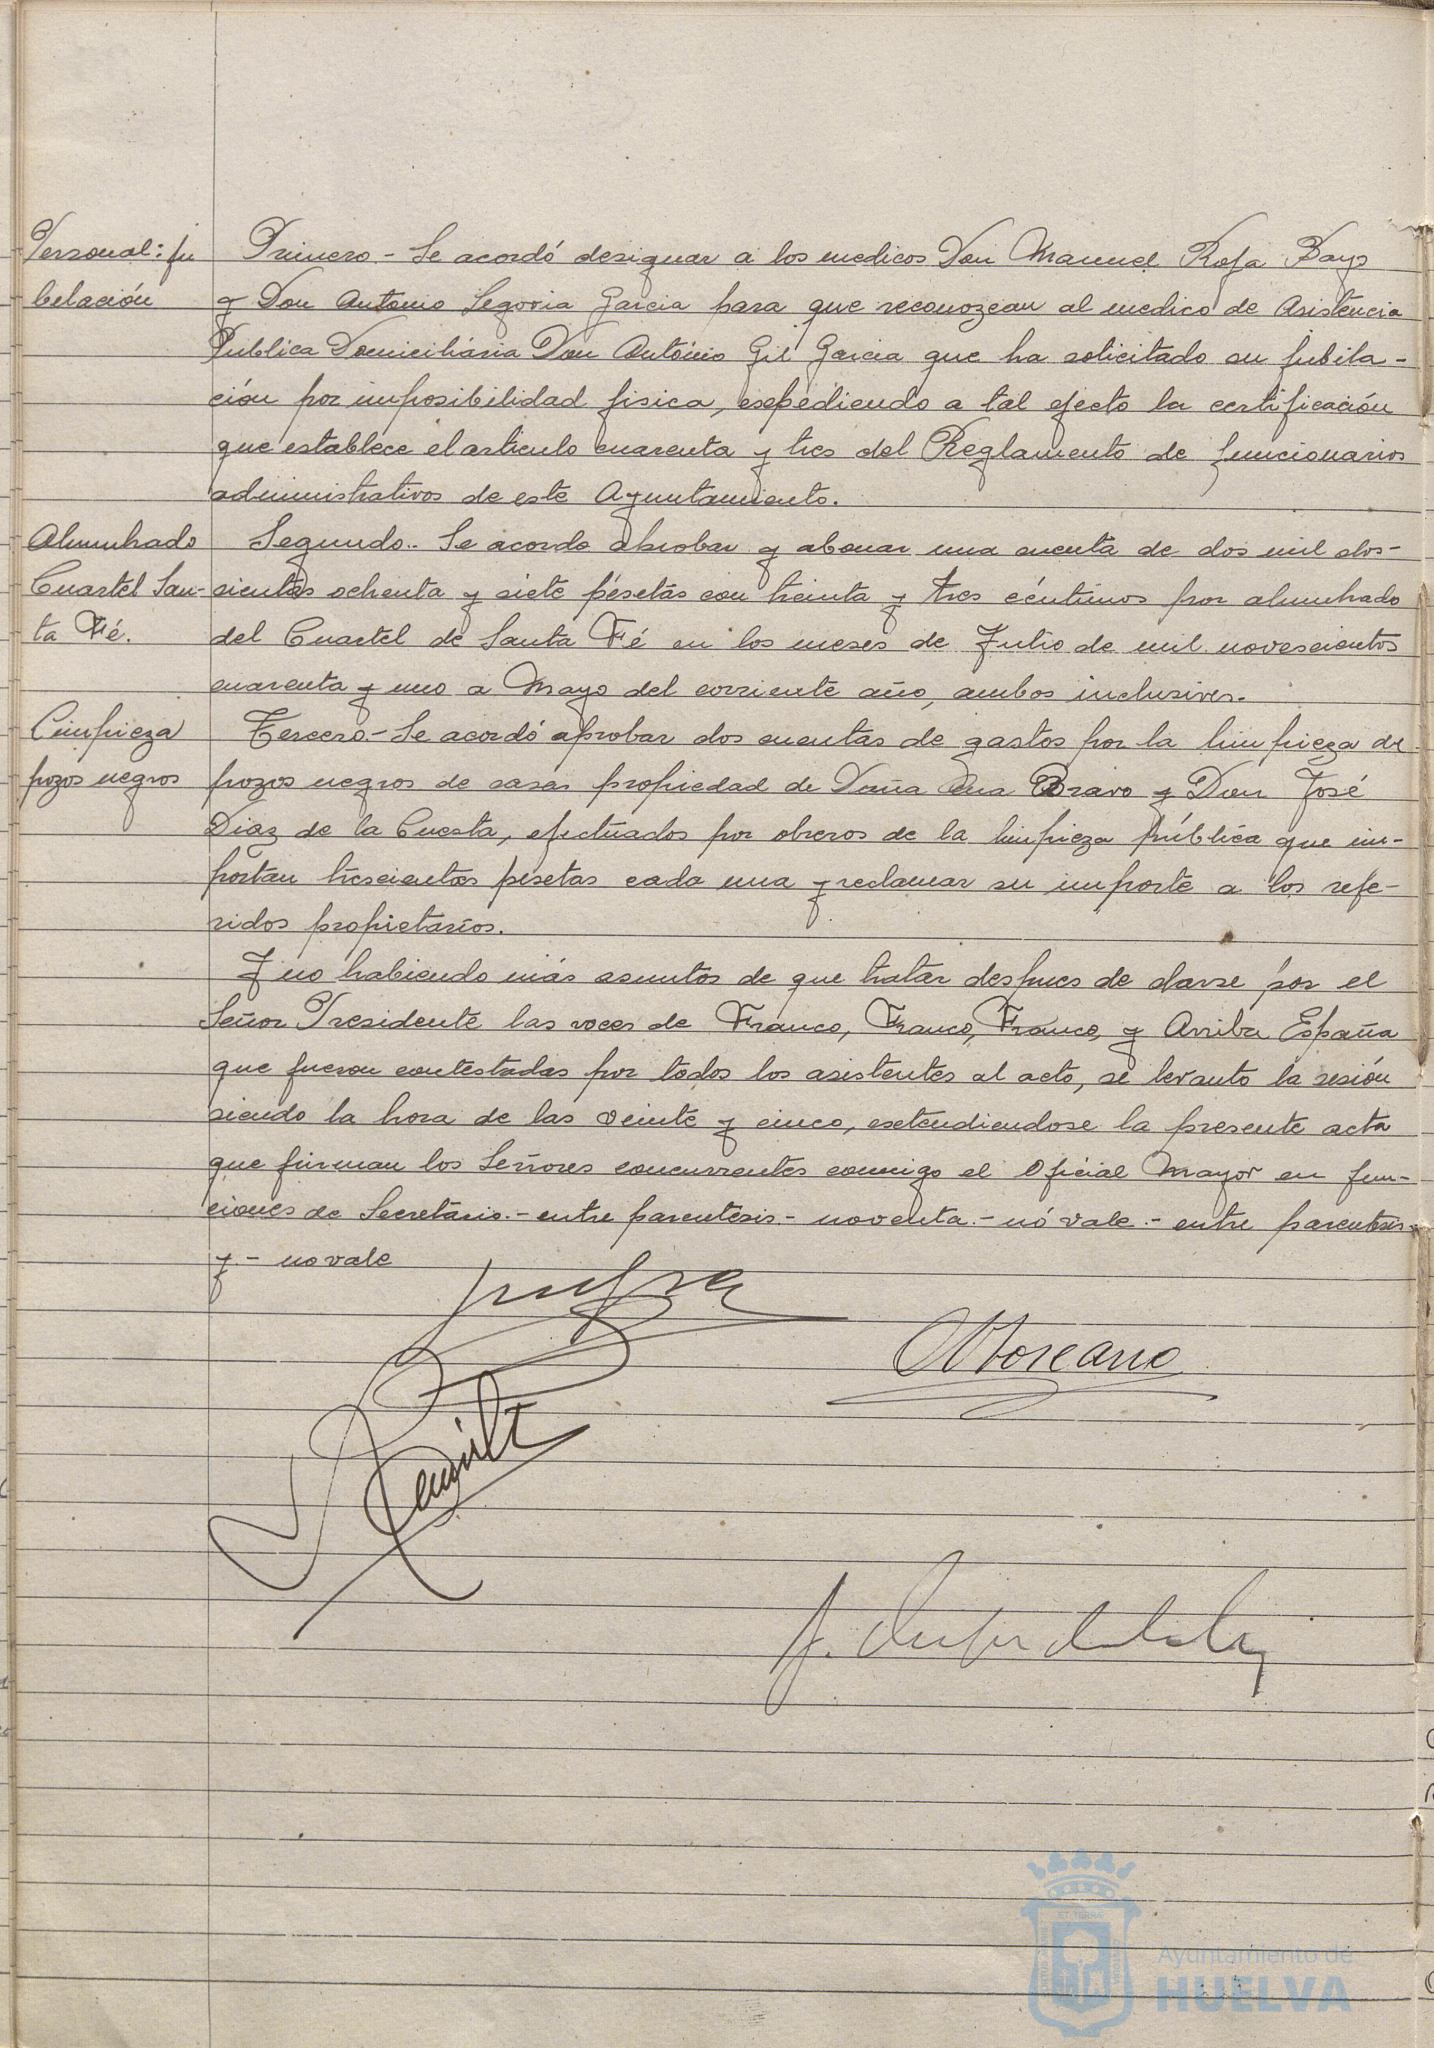 Personal: ju
belación
Primero - Se acordó designar a los medicos Don Manuel Rofa Bayo
y Don Antonio Segovia Garcia para que reconozcan al medico de Asistencia
Publica Domiciliaria Don António Gil Garcia que ha solicitado su jubila-
ción por imposibilidad fisica, expédiendo a tal efecto la certificación
que establece el articulo cuarenta y tres del Reglamento de funcionarios
administrativos de este Ayuntamiento.
Alumbrado
Cuartel San-
ta Fé.
Segundo.- Se acordo aprobar y abonar una cuenta de dos mil dos-
cientas ochenta y siete pesetas con treinta y tres céntimos por alumbrado
del Cuartel de Santa Fé en los meses de Julio de mil novescientos
cuarenta y uno a Mayo del corriente año, ambos inclusives.
Limpieza
pozos negros
Tercero.- Se acordó aprobar dos cuentas de gastos por la limpieza de
pozos negros de casas propiedad de Doña Ana Bravo y Don José
Diaz de la Cuesta, efectuados por obreros de la limpieza pública que im-
portan trescientas pesetas cada una y reclamar su importe a los refe-
ridos propietarios.
Y no habiendo más asuntos de que tratar despues de darse por el
Señor Presidente las voces de Franco, Franco, Franco, y Arriba España
que fueron contestadas por todos los asistentes al acto, se levanto la sesión
siendo la hora de las veinte y cinco, extendiendose la presente acta
que firman los Señores concurrentes conmigo el Oficial Mayor en fun-
ciones de Secretario.- entre parentesis.- noventa.- nó vale.- entre parentesis-
y.- no vale
Moreano
Ayuntamiento de
HUELVA